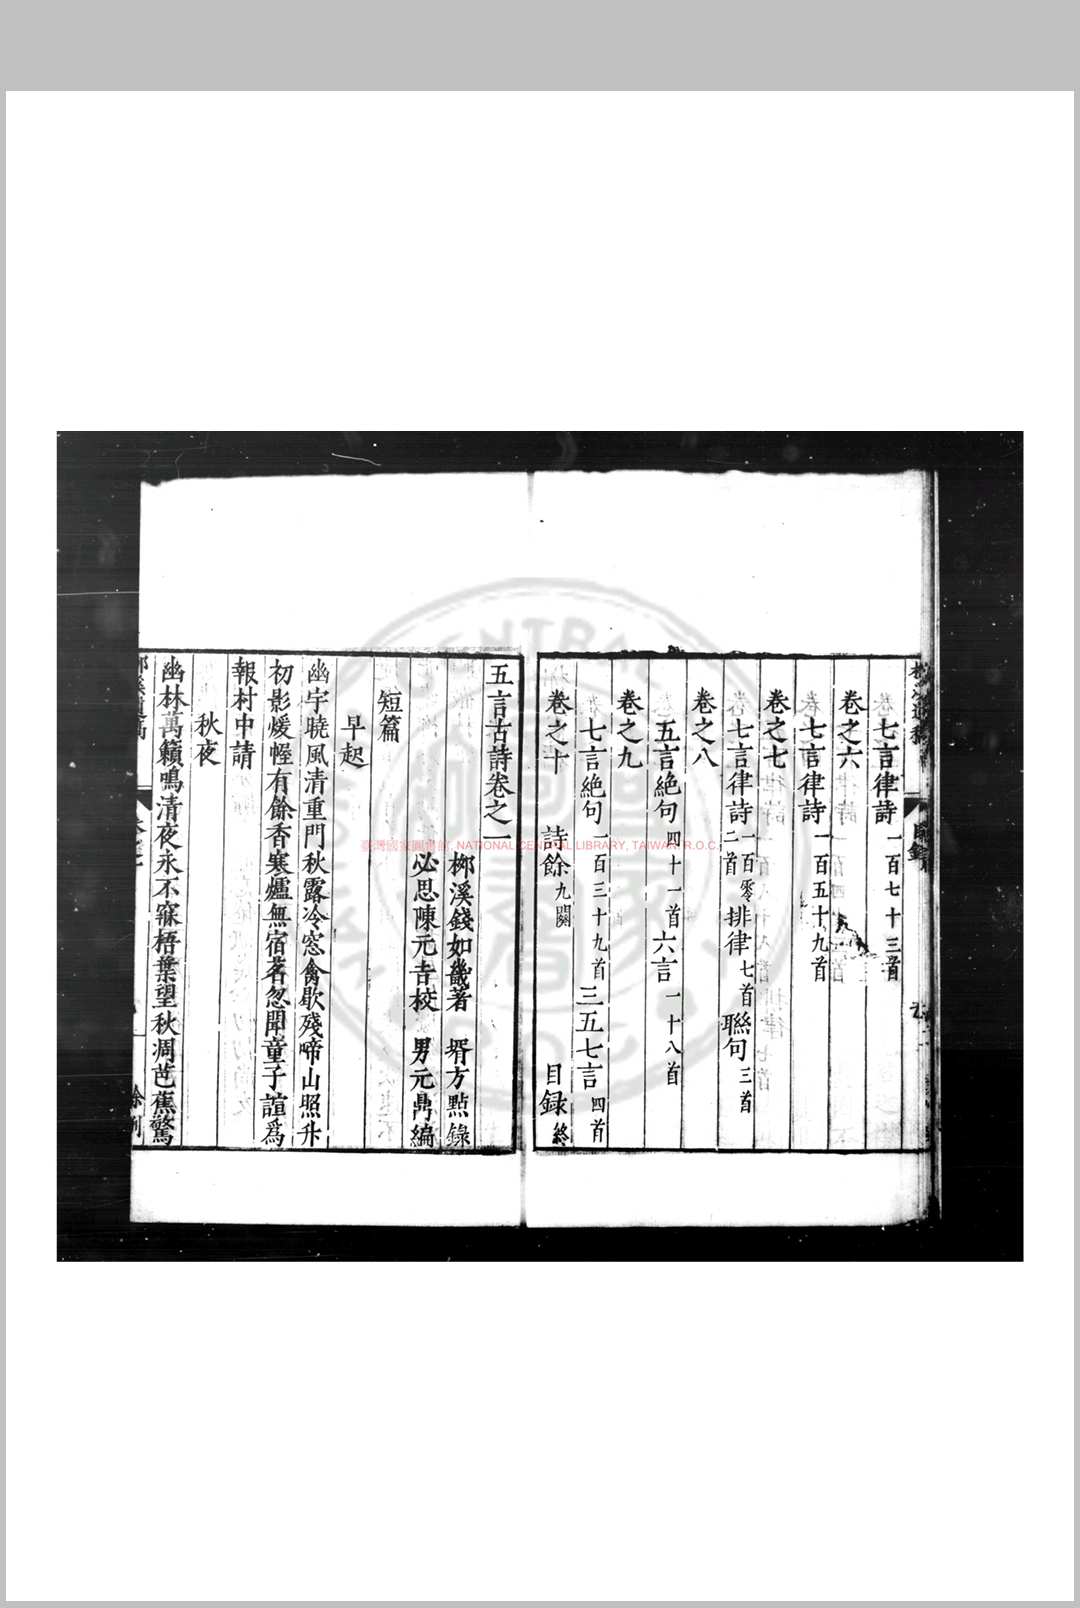 七言律詩一百七十三首
卷之六
七言律詩一百五十九首
卷之七
七言律詩一百零二首排律七首聯句三首
卷之八
五言絕句四十一首六言一十八首
卷之九
七言絕句一百三十九首三五七言四首
卷之十 詩餘九闋 目録終
五言古詩卷之一
栁溪錢如畿著 壻方點錄
必思陳元吉校 男元鼎編
短篇
早起
幽宇曉風清重門秋露冷窓禽歇殘啼山照升
初影煖幄有餘香寒爐無宿茗忽聞童子諠爲
報村中請
秋夜
幽林萬籟鳴清夜永不寐梧葉望秋凋芭蕉驚
臺灣國家圖書館, NATIONAL CENTRAL LIBRARY, TAIWAN R.O.C.